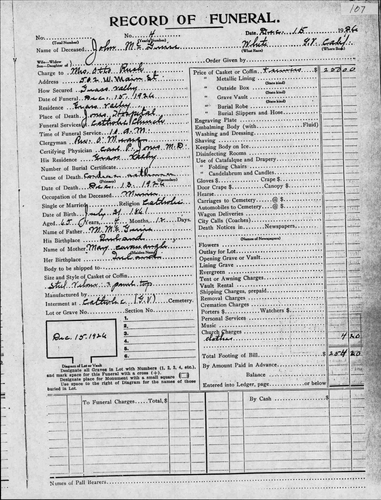 107
RECORD OF FUNERAL.
No. No. 4 Date Dec. 15 1926
(Total Number) (Yearly Number)
Name of Deceased John Mc Guire White Calif.
(What Race) (Where Born)
Wife—Widow
Son—Daughter of Order Given by
Charge to Mrs. Otto Price of Casket or Coffin 250 00
Address 502 W. Main St. " Metallic Lining
How Secured Grass Valley " Outside Box
(State Kind)
Date of Funeral Dec. 15, 1926 " Grave Vault
(State Kind)
Residence Grass Valley " Burial Robe
Place of Death Jones Hospital " Burial Slippers and Hose
Funeral Services at Catholic Church Engraving Plate
Time of Funeral Service 10 A.M. Embalming Body (with Fluid)
Clergyman Washing and Dressing
Certifying Physician Carl P. Jones M.D. Shaving
His Residence Grass Valley Keeping Body on Ice
Number of Burial Certificate Disinfecting Rooms
Cause of Death Use of Catafalque and Drapery
Date of Death Dec 13, 1926 " Folding Chairs
Occupation of the Deceased Miner " Candelabrum and Candles
Single or Married Religion Catholic Gloves $ Crape $
Date of Birth July 31 1861 Door Crape $ Canopy $
Aged 65 Years Months 12 Days Hearse
Name of Father M. Mc Guire Carriages to Cemetery @
His Birthplace Ireland Automobiles to Cemetery @
Name of Mother May Cavanaugh Wagon Deliveries
Her Birthplace City Calls (Coaches)
Body to be shipped to Death Notices in Newspapers
(Names of Newspapers)
Size and Style of Casket or Coffin Flowers
Outlay for Lot
Manufactured by Opening Grave or Vault
Interment at Catholic (G.V.) Cemetery. Lining Grave
Lot or Grave No. Section No. Evergreen
Tent or Awning Charges
Vault Rental
Shipping Charges, prepaid
Removal Charges
Cremation Charges
Dec 15, 1926 Porters $ Watchers $
Personal Services
Music
Church Charges
Clothes 4 20
Total Footing of Bill $ 254 20
By Amount Paid in Advance
Diagram of Lot or Vault Balance
Designate all Graves in Lot with Numbers (1, 2, 3, 4, etc.), and mark space for this Funeral with a cross (+). Entered into Ledger, page or below
Designate place for Monument with a small square
Use space to the right of Diagram for the names of those buried in Lot.
To Funeral Charges Total, $ By Cash $
Names of Pall Bearers